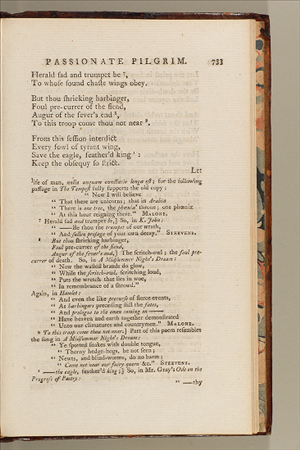 PASSIONATE PILGRIM. 733
Herald sad and trumpet be 7,
To whose sound chaste wings obey.
But thou shrieking harbinger,
Foul pre-currer of the fiend,
Augur of the fever's end 8,
To this troop come thou not near 9.
From this session interdict
Every fowl of tyrant wing,
Save the eagle, feather'd king 1 :
Keep the obsequy so strict.
Let
life of man, nulla unquam for the following
passage in The Tempest fully supports the old copy :
" Now I will believe
" That there are unicorns; that in Arabia
" There is one tree, the phœnix' throne; one phœnix
" At this hour reigning there." MALONE.
7 Herald sad and trumpet be,] So, in K. John :
" —— Be thou the trumpet of our wrath,
" And sullen presage of your own decay." STEEVENS.
8 But thou shrieking harbinger,
Foul pre-currer of the fiend,
Augur of the fever's end,] The scritch-owl; the foul pre-
currer of death. So, in A Midsummer Night's Dream :
" Now the wasted brands do glow,
" While the scritch-owl, scritching loud,
" Puts the wretch that lies in woe,
" In remembrance of a shroud."
Again, in Hamlet :
" And even the like precurse of fierce events,
" As harbingers preceding still the fates,
" And prologue to the omen coming on ——
" Have heaven and earth together demonstrated
" Unto our climatures and countrymen." MALONE.
9 To this troop come thou not near.] Part of this poem resembles
the song in A Midsummer Night's Dream :
" Ye spotted snakes with double tongue,
" Thorny hedge-hogs, be not seen;
" Newts, and blind-worms, do no harm;
" Come not near our fairy queen &c." STEEVENS.
1 —— the eagle, feather'd king ;] So, in Mr. Gray's Ode on the
Progress of Poetry :
" —thy